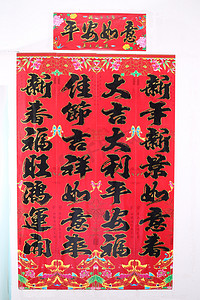 平安如意
新年新景如意春
大吉大利平安福
佳節吉祥如意來
新春福旺鴻運開